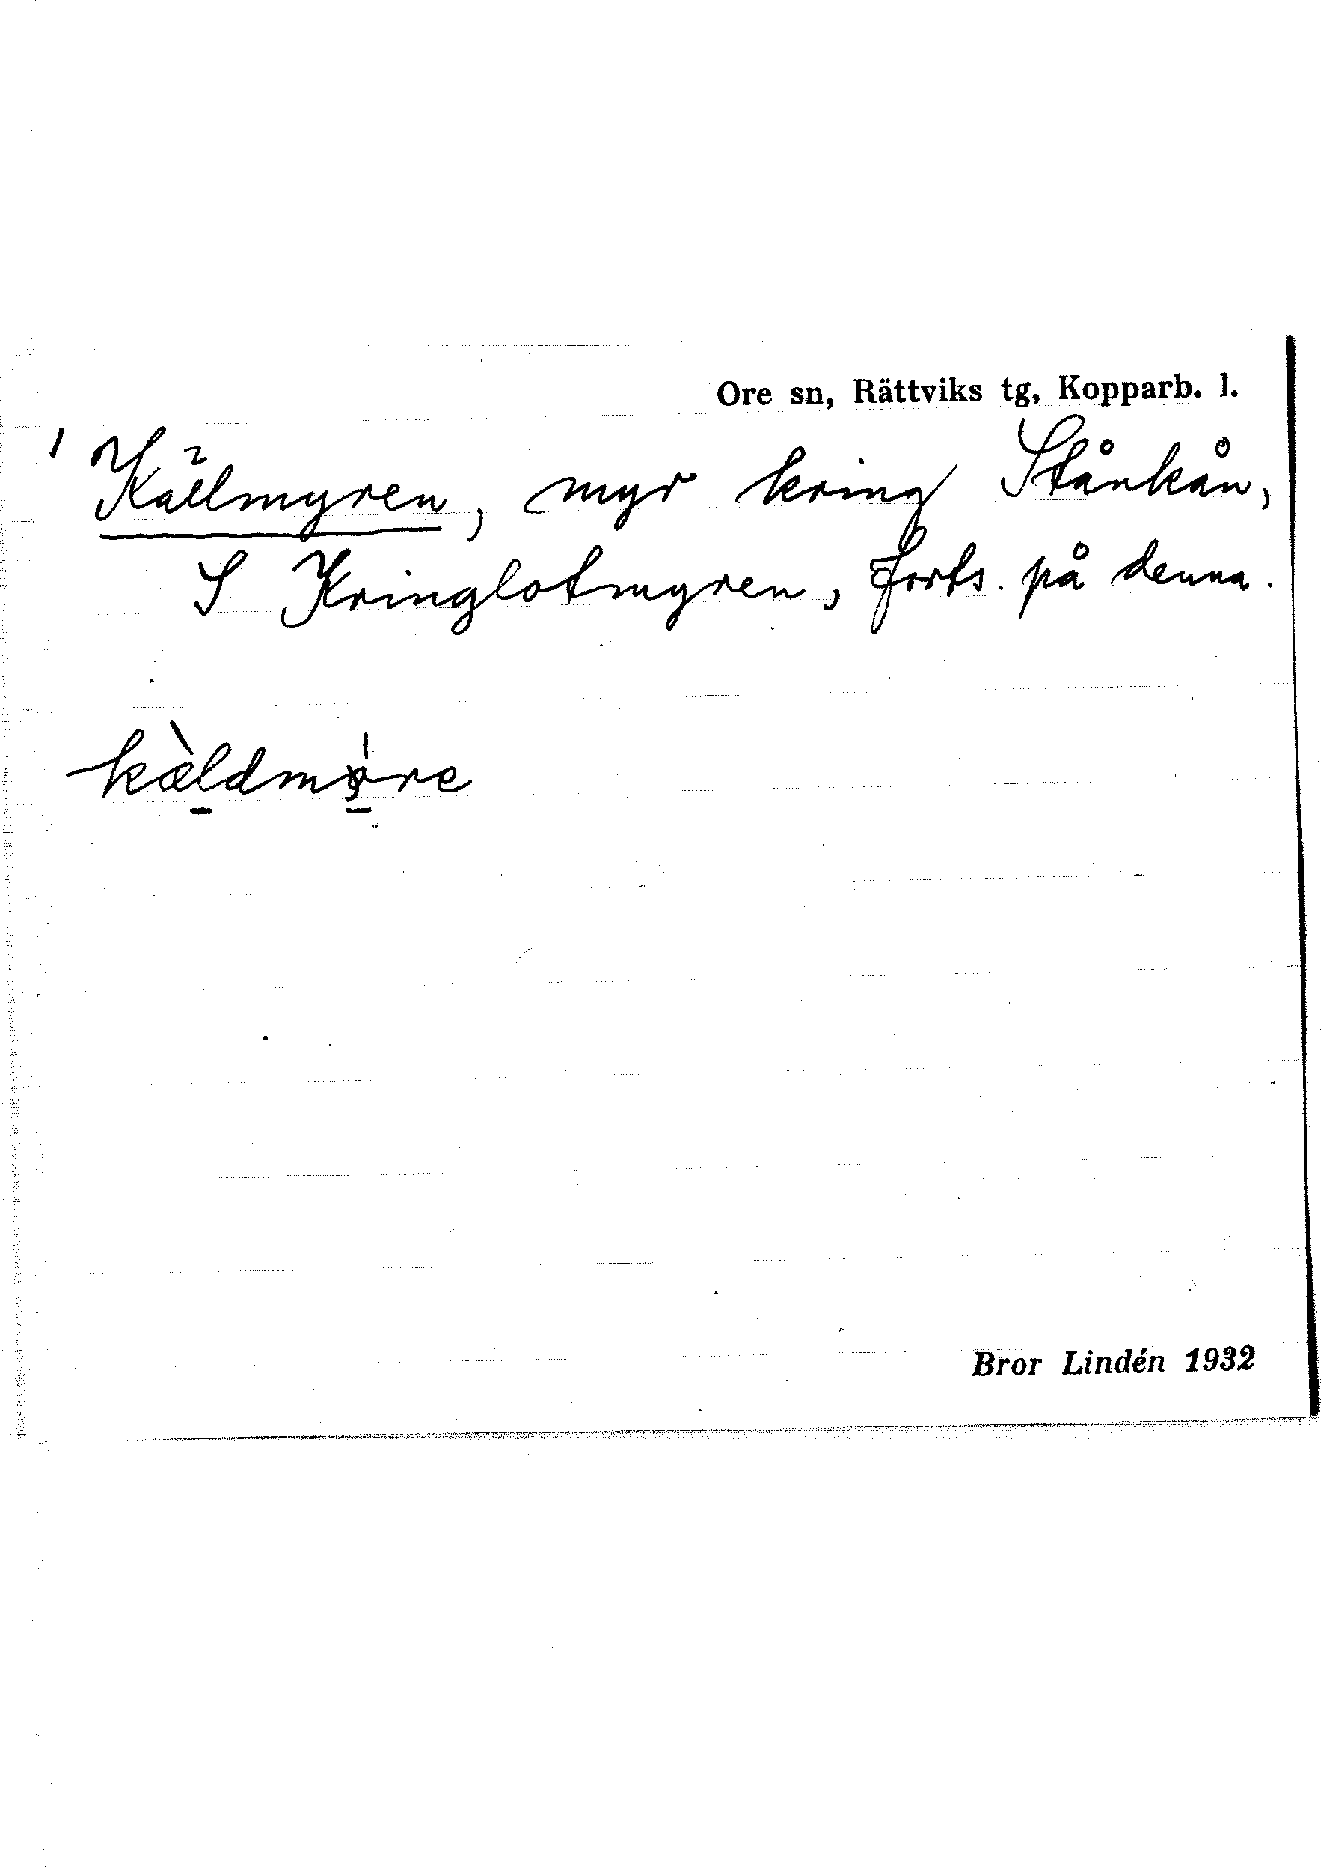 Ore sn, Rättviks tg, Kopparb. l.
Källmyren, myr kring Stånkån,
S Kringlotmyren, forts. på denna.
Bror Lindén 1932